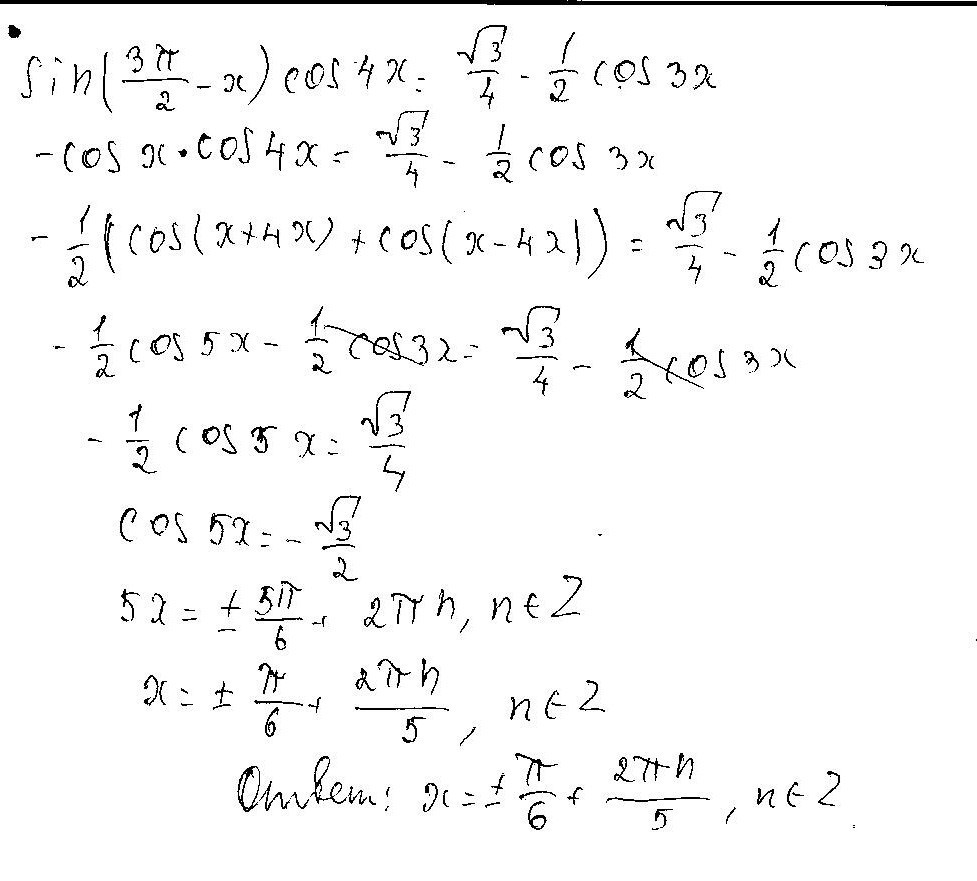 sin(3π/2 - x) cos 4x = √3/4 - 1/2 cos 3x
- cos x · cos 4x = √3/4 - 1/2 cos 3x
- 1/2 (cos(x+4x) + cos(x-4x)) = √3/4 - 1/2 cos 3x
- 1/2 cos 5x - 1/2 cos 3x = √3/4 - 1/2 cos 3x
- 1/2 cos 5x = √3/4
cos 5x = - √3/2
5x = ± 5π/6 + 2πn, n ∈ Z
x = ± π/6 + 2πn/5, n ∈ Z
Ответ: x = ± π/6 + 2πn/5, n ∈ Z.